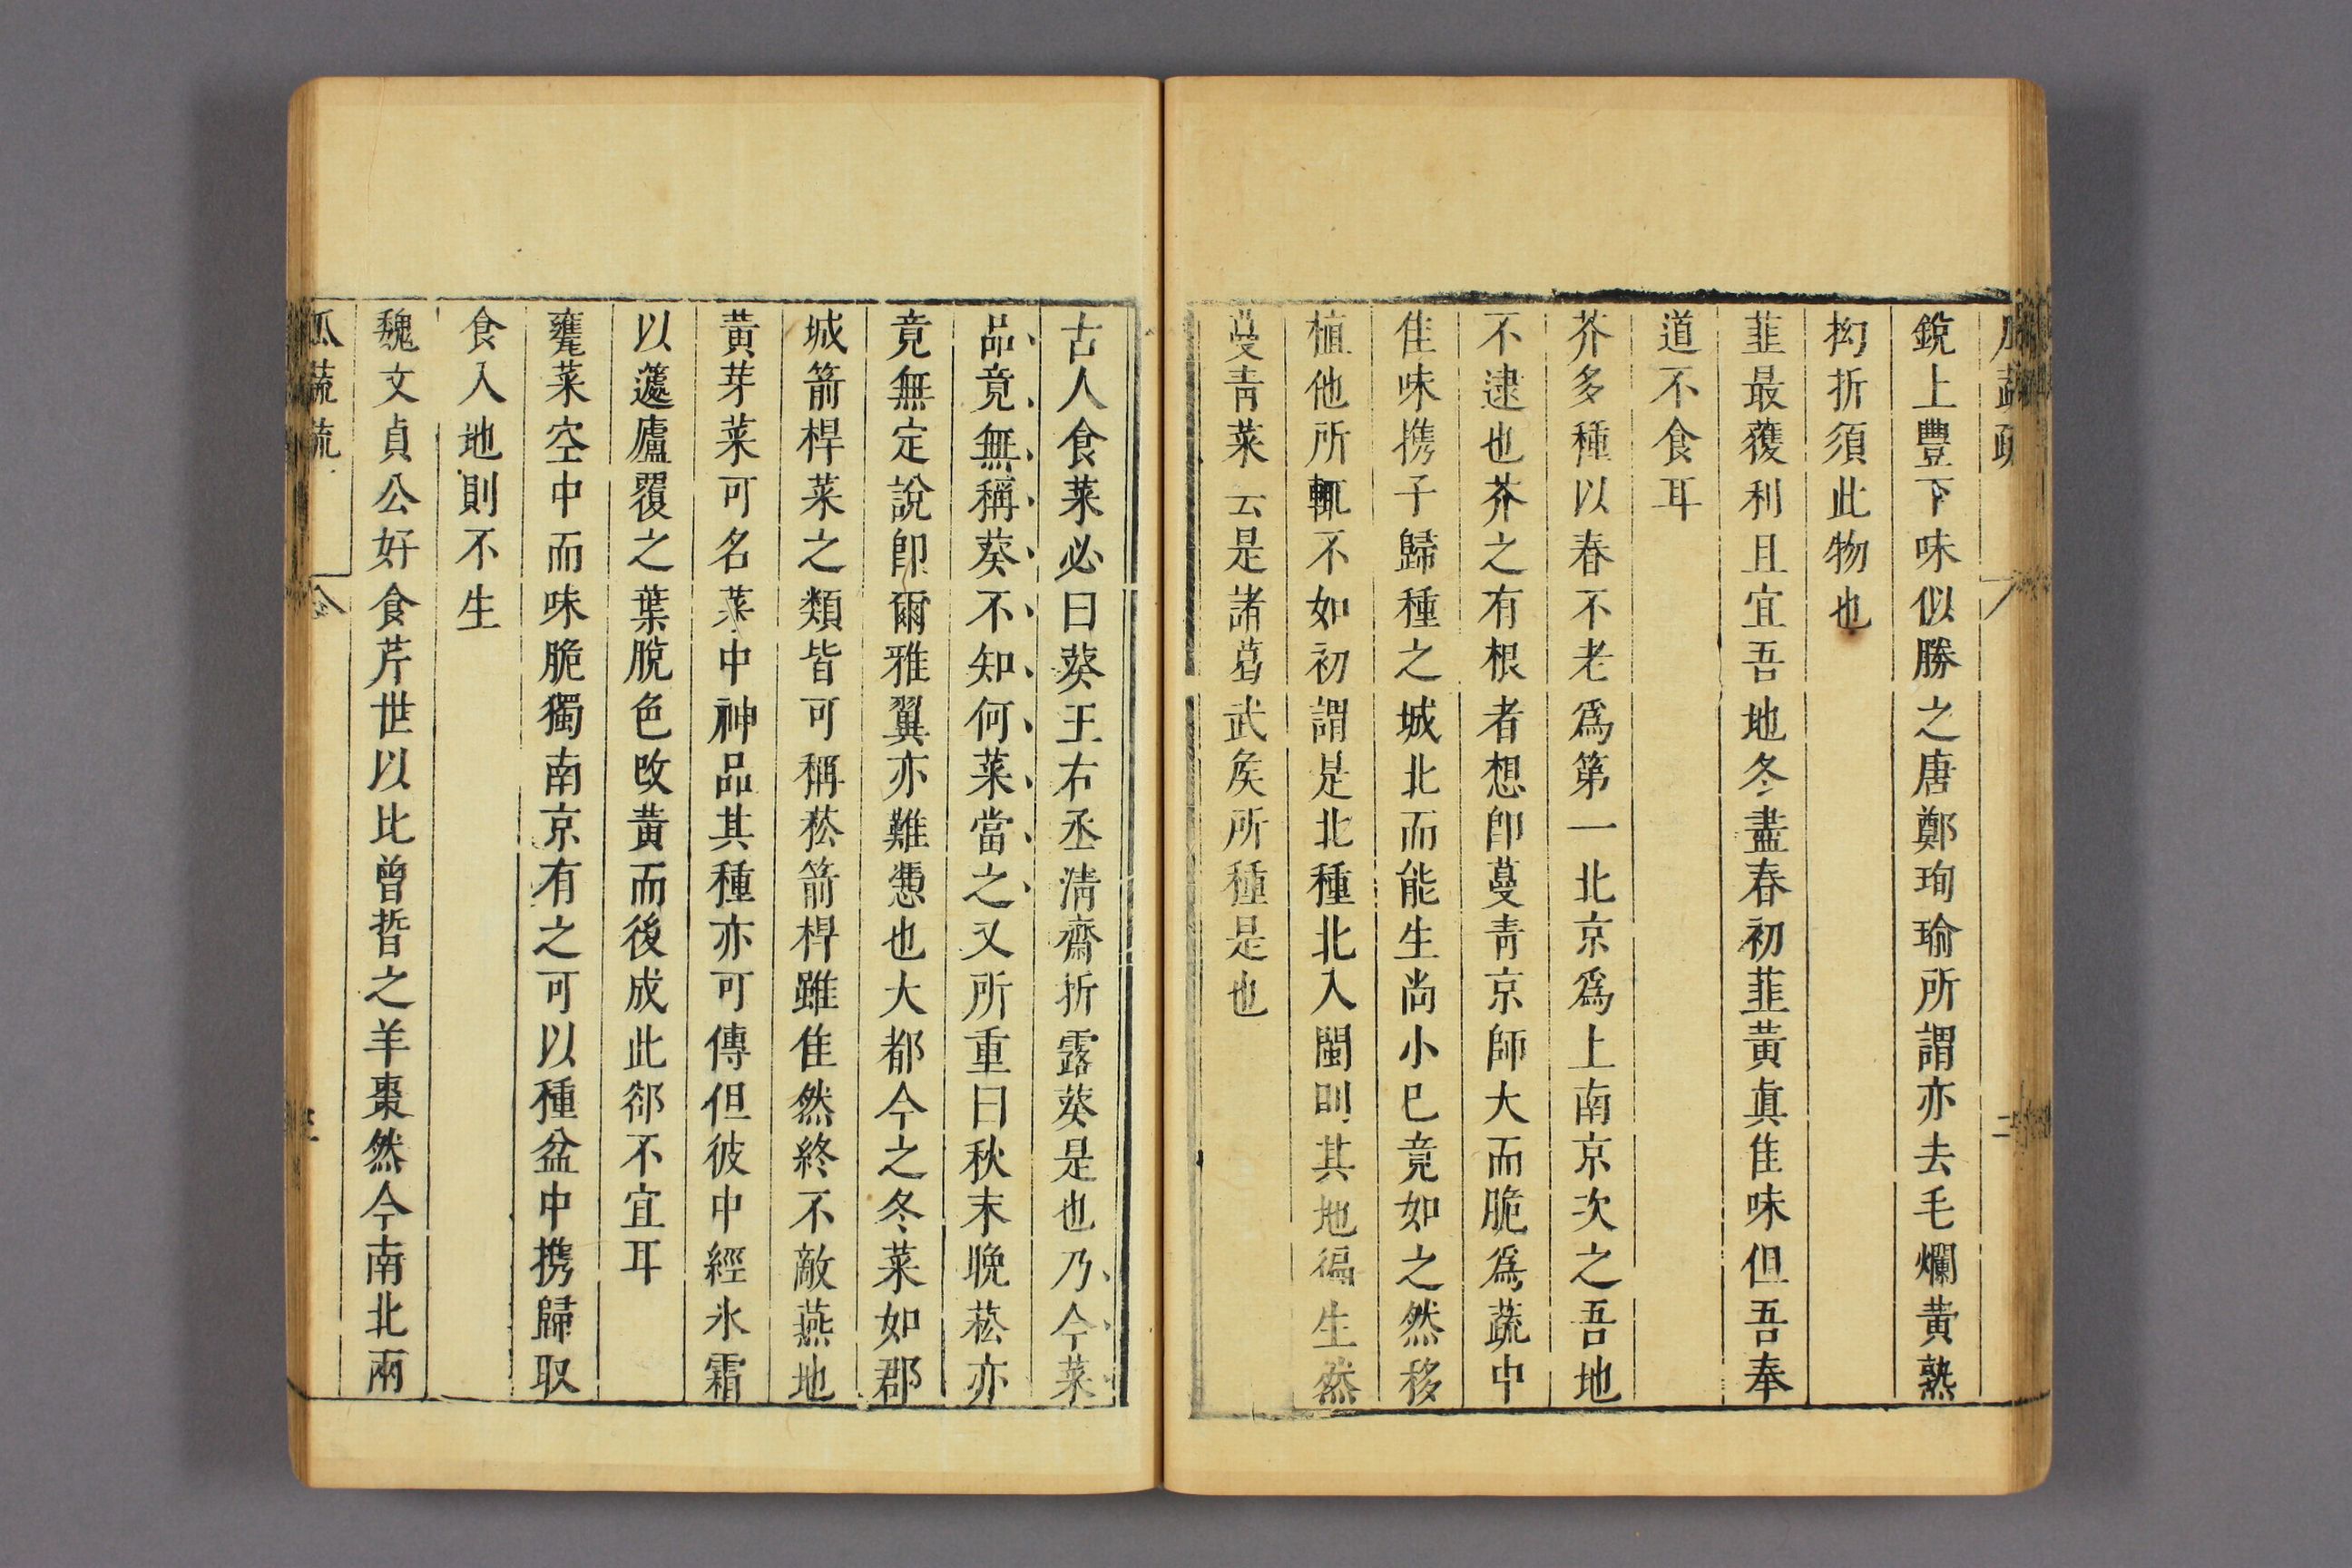 瓜蔬疏
二
銳上豐下味似勝之唐鄭珣瑜所謂亦去毛爛黄熟
抝折須此物也
韮最穫利且宜吾地冬盡春初韮黄眞隹味但吾奉
道不食耳
芥多種以春不老爲第一北京爲上南京次之吾地
不逮也芥之有根者想卽蔓青京師大而脆爲蔬中
隹味携子歸種之城北而能生尚小已竟如之然移
植他所輒不如初謂是北種北入閩則其地徧生然
蔓青菜云是諸葛武矦所種是也
古人食菜必曰葵王右丞清齋折露葵是也乃今菜
品竟無稱葵不知何菜當之又所重曰秋末晩菘亦
竟無定說卽爾雅翼亦難慿也大都今之冬菜如郡
城箭桿菜之類皆可稱菘箭桿雖隹然終不敵燕地
黄芽菜可名菜中神品其種亦可傳但彼中經氷霜
以蘧廬覆之葉脫色改黄而後成此郤不宜耳
蕹菜空中而味脆獨南京有之可以種盆中携歸取
食入地則不生
魏文貞公好食芹世以比曾晳之羊棗然今南北兩
瓜蔬疏